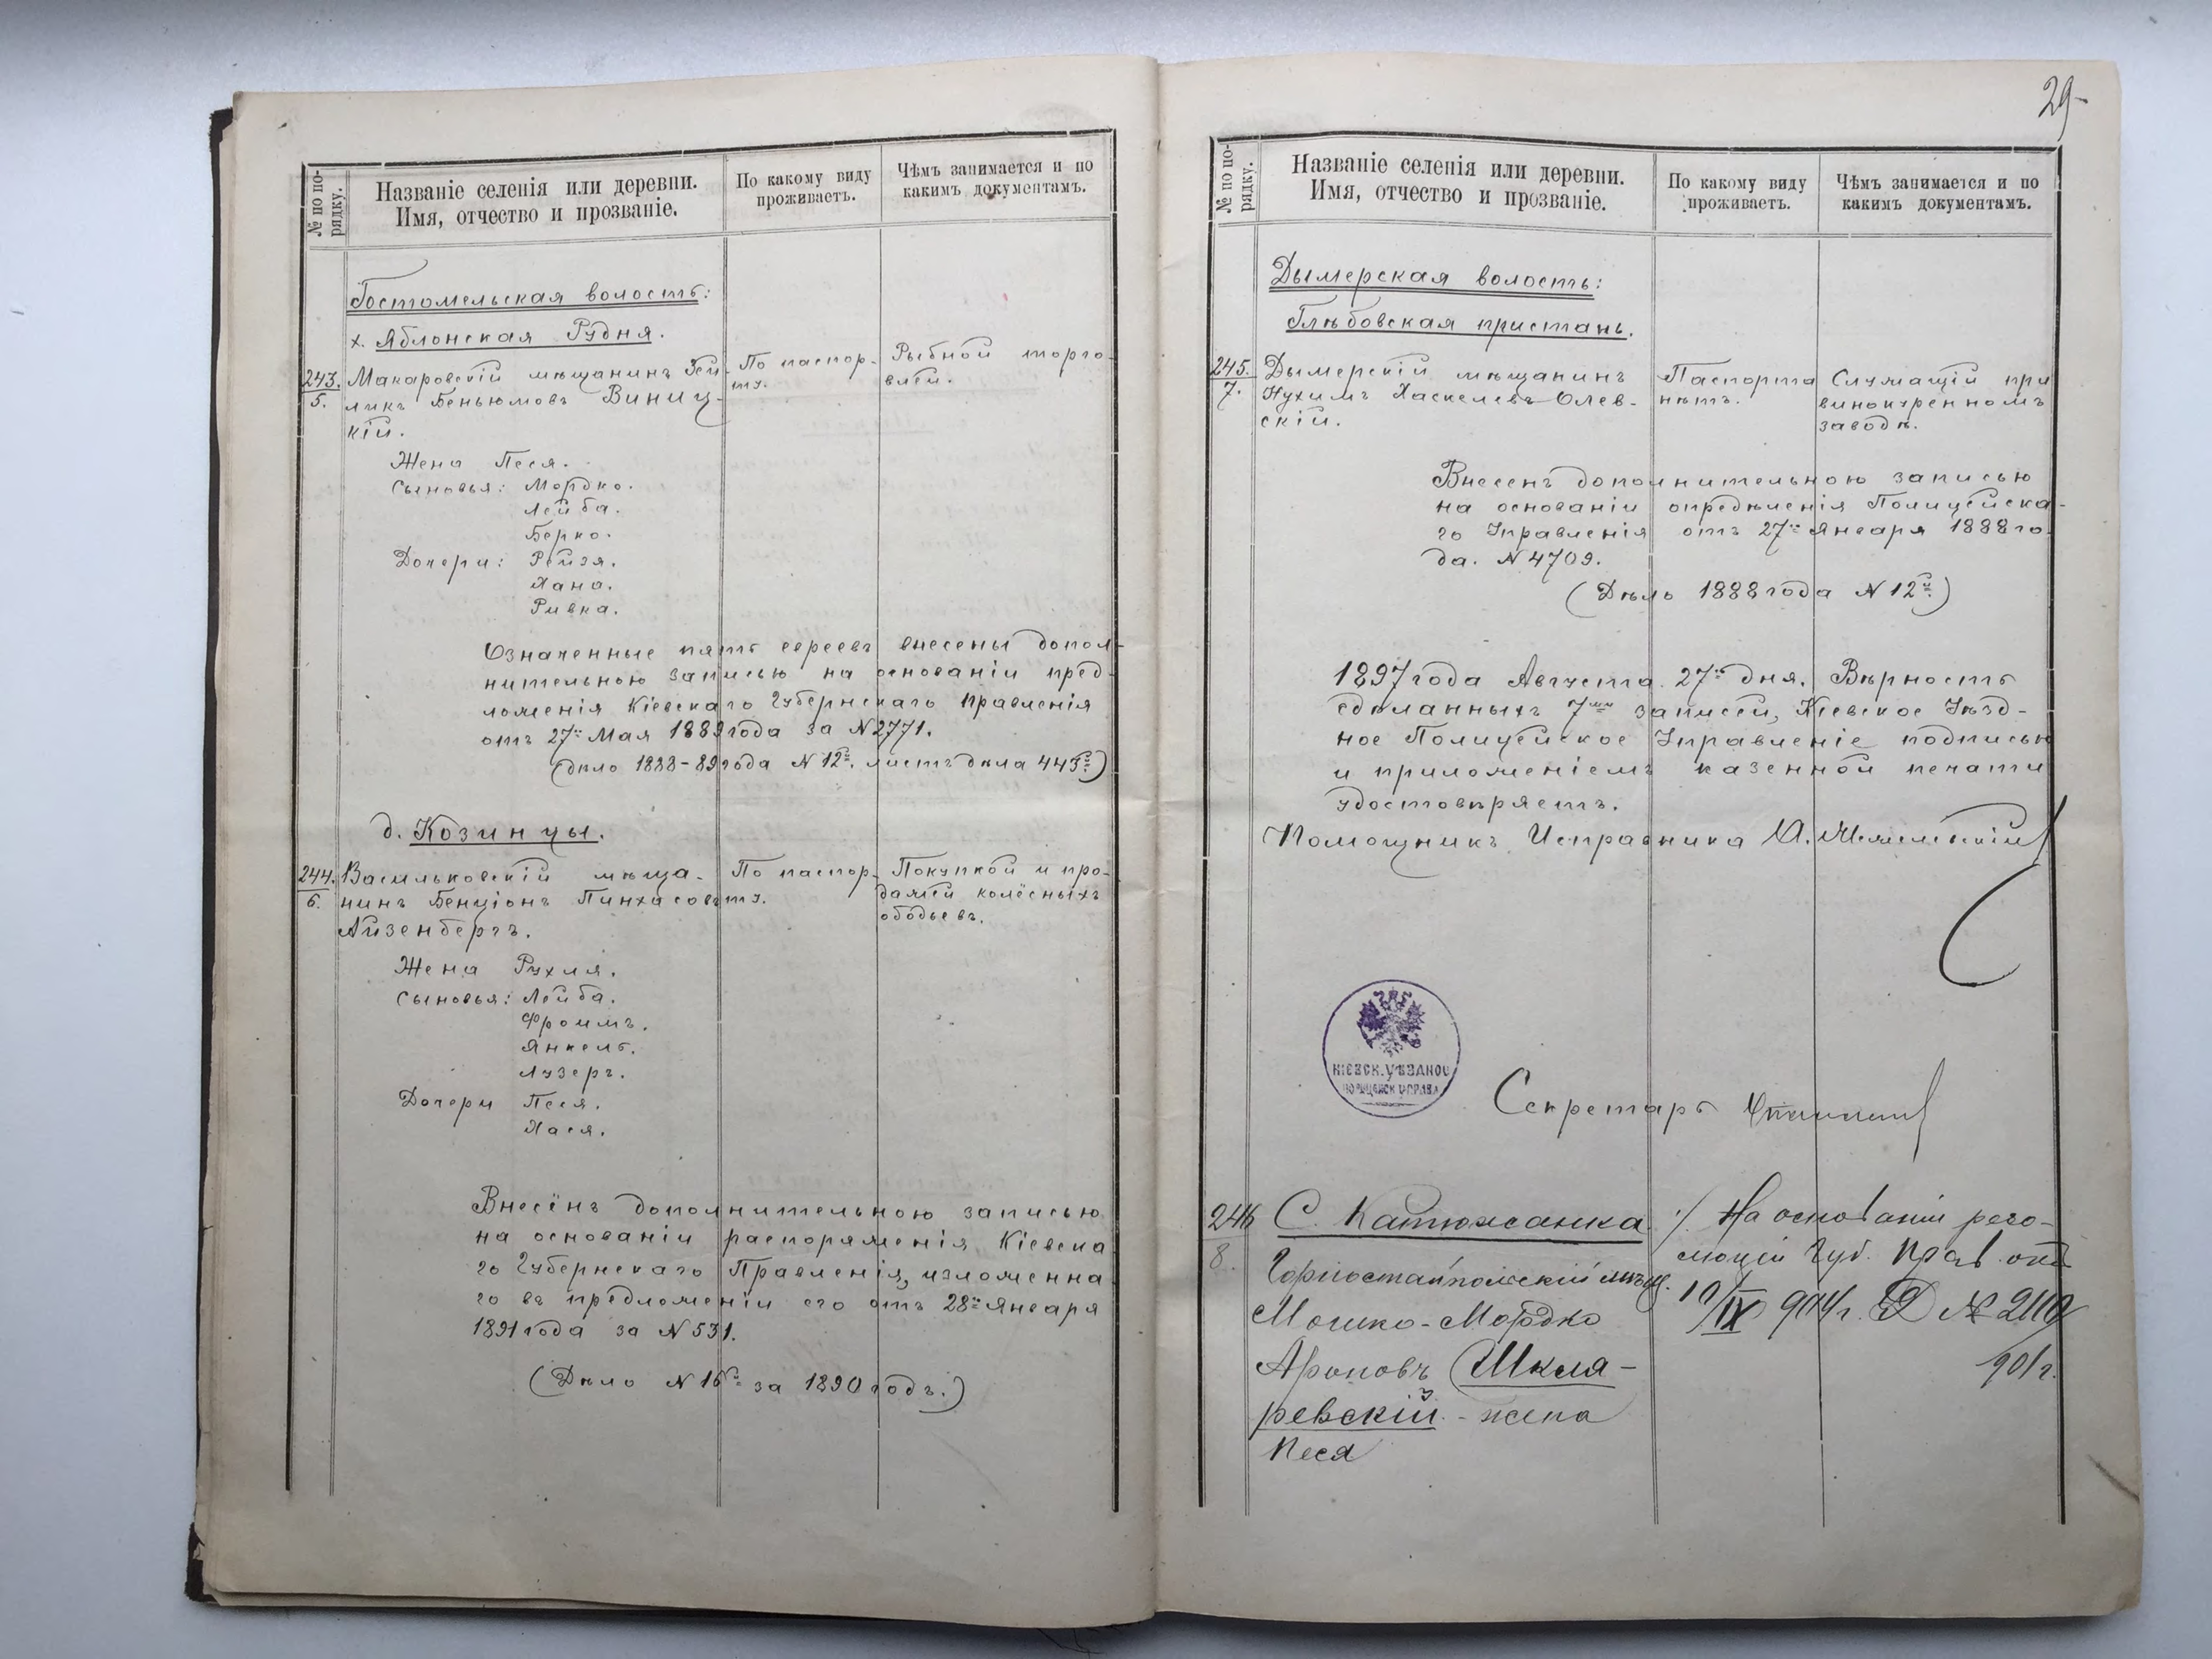 № по по-
рядку.
Названіе селенія или деревни.
Имя, отчество и прозваніе.
По какому виду
проживаетъ.
Чѣмъ занимается и по
какимъ документамъ.
Гостомельская волость:
х. Яблонская Рудня.
243.
5.
Макаровскій мѣщанинъ
ликъ Беньюмовъ Виниц-
кій.
По паспор-
ту.
Рыбной торго-
влей.
Жена Песя.
Сыновья: Мордко.
Лейба.
Берко.
Дочери: Рейзя.
Хана.
Ривка.
Означенные пять евреевъ внесены допол-
нительною записью на основаніи пред-
ложенія Кіевскаго Губернскаго Правленія
отъ 27го Мая 1889 года за №2771.
(дѣло 1888-89 года № 12й. листъ дѣла 443й)
д. Козинцы.
244.
6.
Васильковскій мѣща-
нинъ Бенціонъ Пинхасовъ
Айзенбергъ.
По паспор-
ту.
Покупкой и про-
дажей колёсныхъ
ободьевъ.
Жена Рухля.
Сыновья: Лейба.
Фроимъ.
Янкель.
Лузеръ.
Дочери Песя.
Хася.
Внесёнъ дополнительною записью
на основаніи распоряженія Кіевска
го Губернскаго Правленія, изложенна
го въ предложеніи его отъ 28го Января
1891 года за №531.
(Дѣло №16й за 1890 годъ.)
29
№ по по-
рядку.
Названіе селенія или деревни.
Имя, отчество и прозваніе.
По какому виду
проживаетъ.
Чѣмъ занимается и по
какимъ документамъ.
Дымерская волость:
Глѣбовская пристань.
245.
7.
Дымерскій мѣщанинъ
Нухимъ Хаскелевъ Олев-
скій.
Паспорта
нѣтъ.
Служащій при
винокуренномъ
заводѣ.
Внесенъ дополнительною записью
на основаніи опредѣленія Полицейска-
го Управленія отъ 27го Января 1888 го
да. №4709.
(Дѣло 1888 года №12й.)
1897 года Августа 27го дня. Вѣрность
сдѣланныхъ 7ми записей, Кіевское Уѣзд-
ное Полицейское Управленіе подписью
и приложеніемъ казенной печати
удостовѣряетъ.
Помощникъ Исправника
КІЕВСК. УѢЗДНОЕ
ПОЛИЦЕЙСК УПРАВЛ
Секретарь
246
8.
С. Катюжанка
Горностайпольскій мѣщ.
Мошко-Мордко
Ароновъ Шкля-
ревскій - жена
Песя
На основаніи резо-
люціи Губ. Прав. отъ
10/IX 904 г. Д № 2110
901 г.